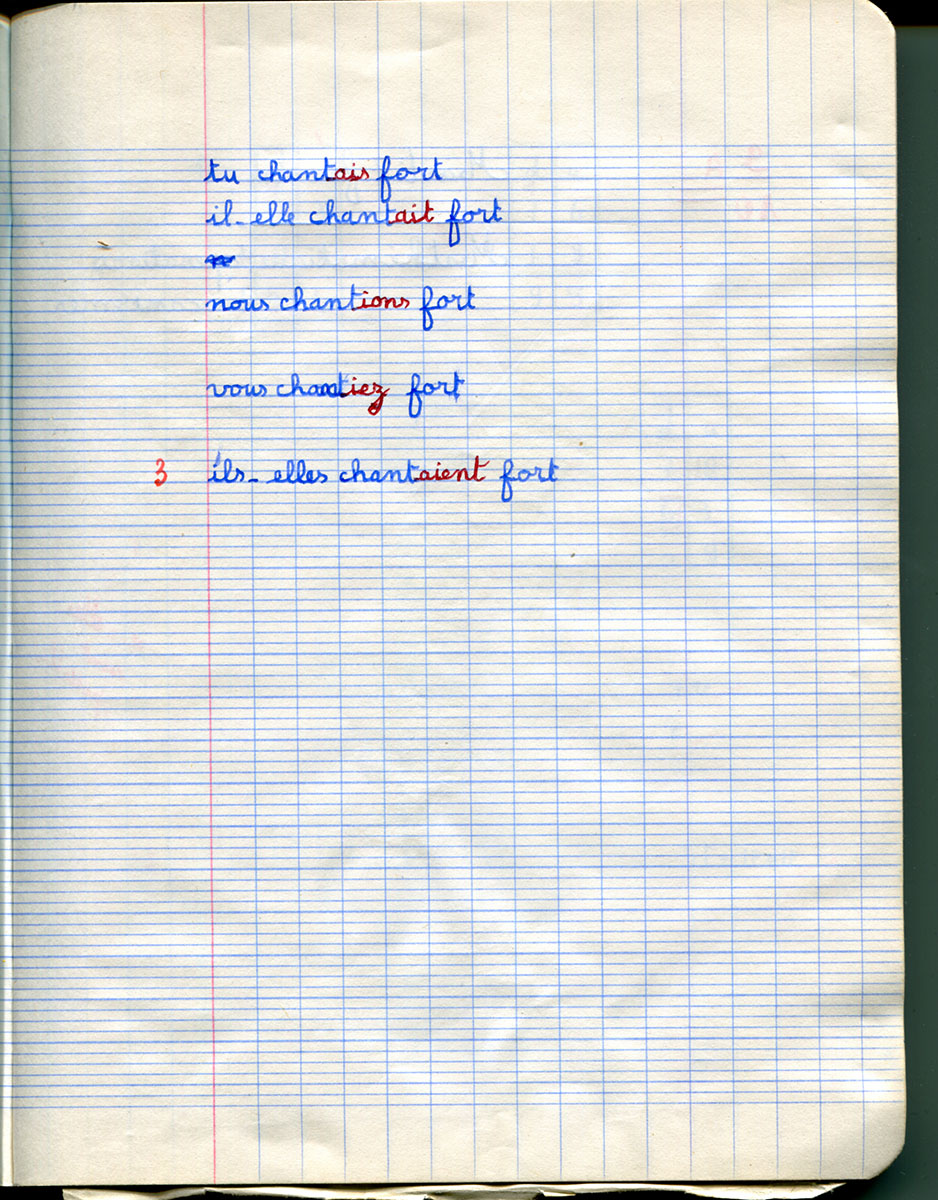 tu chantais fort
il-elle chantait fort
nous chantions fort
vous chantiez fort
3 ils-elles chantaient fort